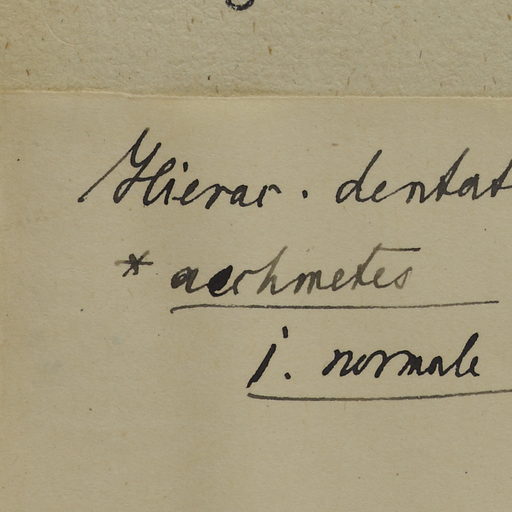 Hierac. dentat
* aechmetes
j. normale